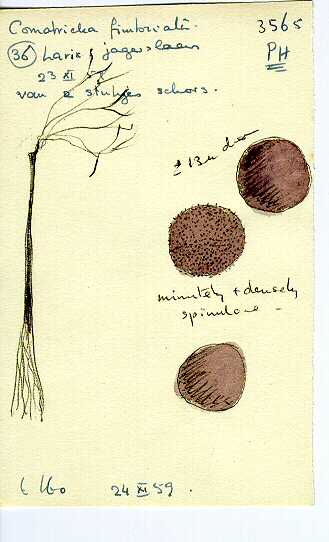 Comatricha fimbriata. 3565
36 Larix jagerslaan PH
23 XI 59
van 2 stukjes schors.
± 13 u diam
minutely + densely
spinulose
24 XI 59.